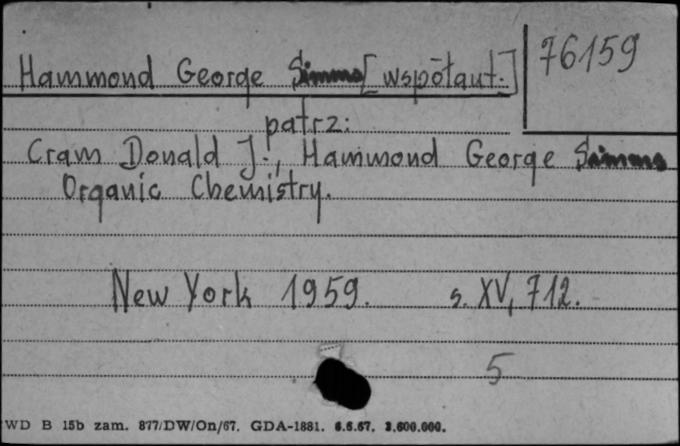 Hammond George Simms [współaut.] 76159
patrz:
Cram Donald J., Hammond George Simms
Organic Chemistry.
New York 1959. s. XV, 712.
5
WD B 15b zam. 877/DW/On/67. GDA-1881. 6.6.67. 3.600.000.